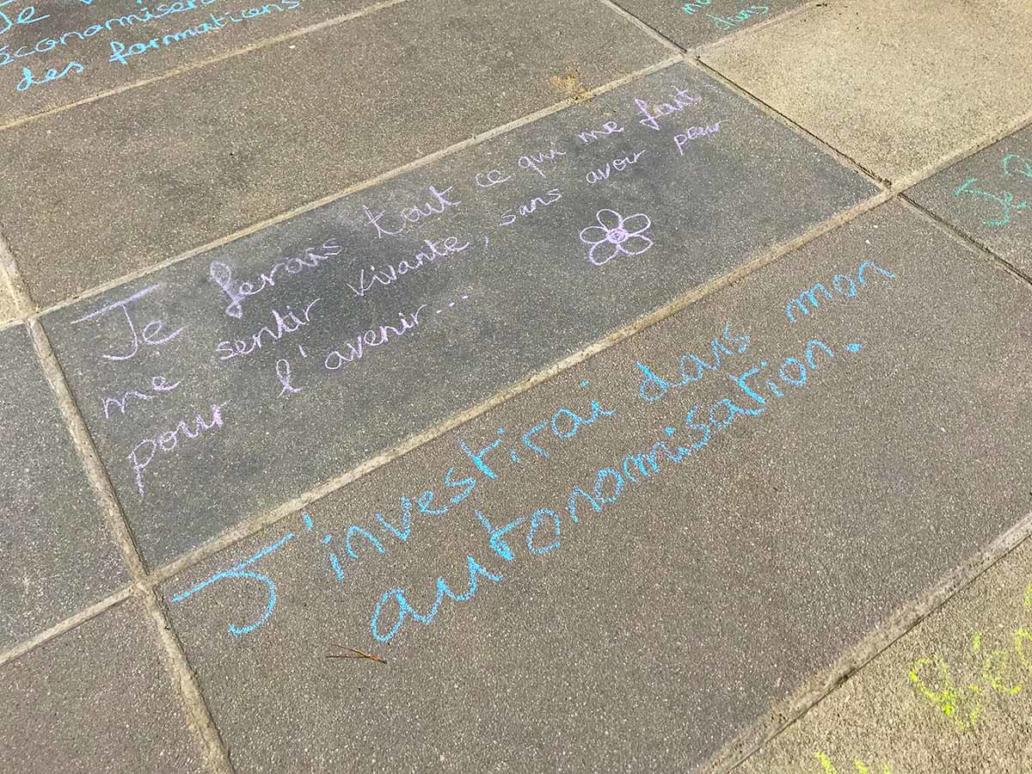 Je
économiser
des formations
dans
Je ferais tout ce qui me fait
me sentir vivante, sans avoir peur
pour l'avenir...
J'investirai dans mon
autonomisation.
Je